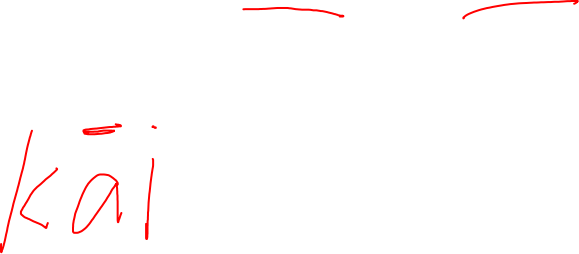 kāi